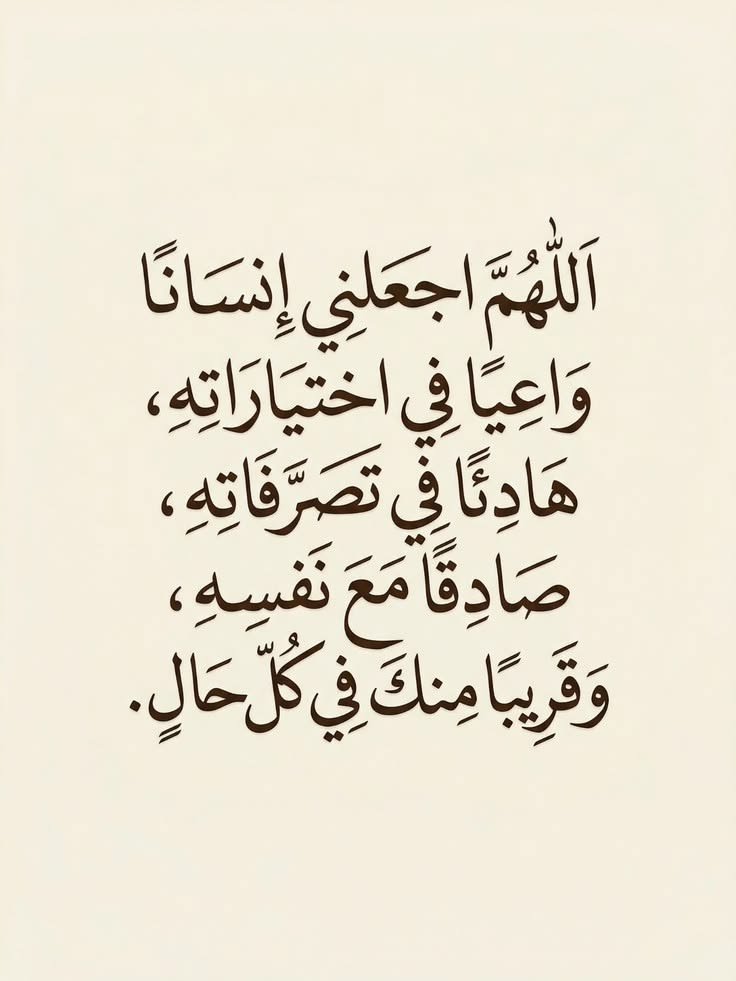 اَللّٰهُمَّ اجعَلنِي إِنسَانًا
وَاعِيًا فِي اختيَارَاتِهِ،
هَادِئًا فِي تَصَرَّفَاتِهِ،
صَادِقًا مَعَ نَفسِهِ،
وَقَرِيبًا مِنكَ فِي كُلّ حَالٍ.